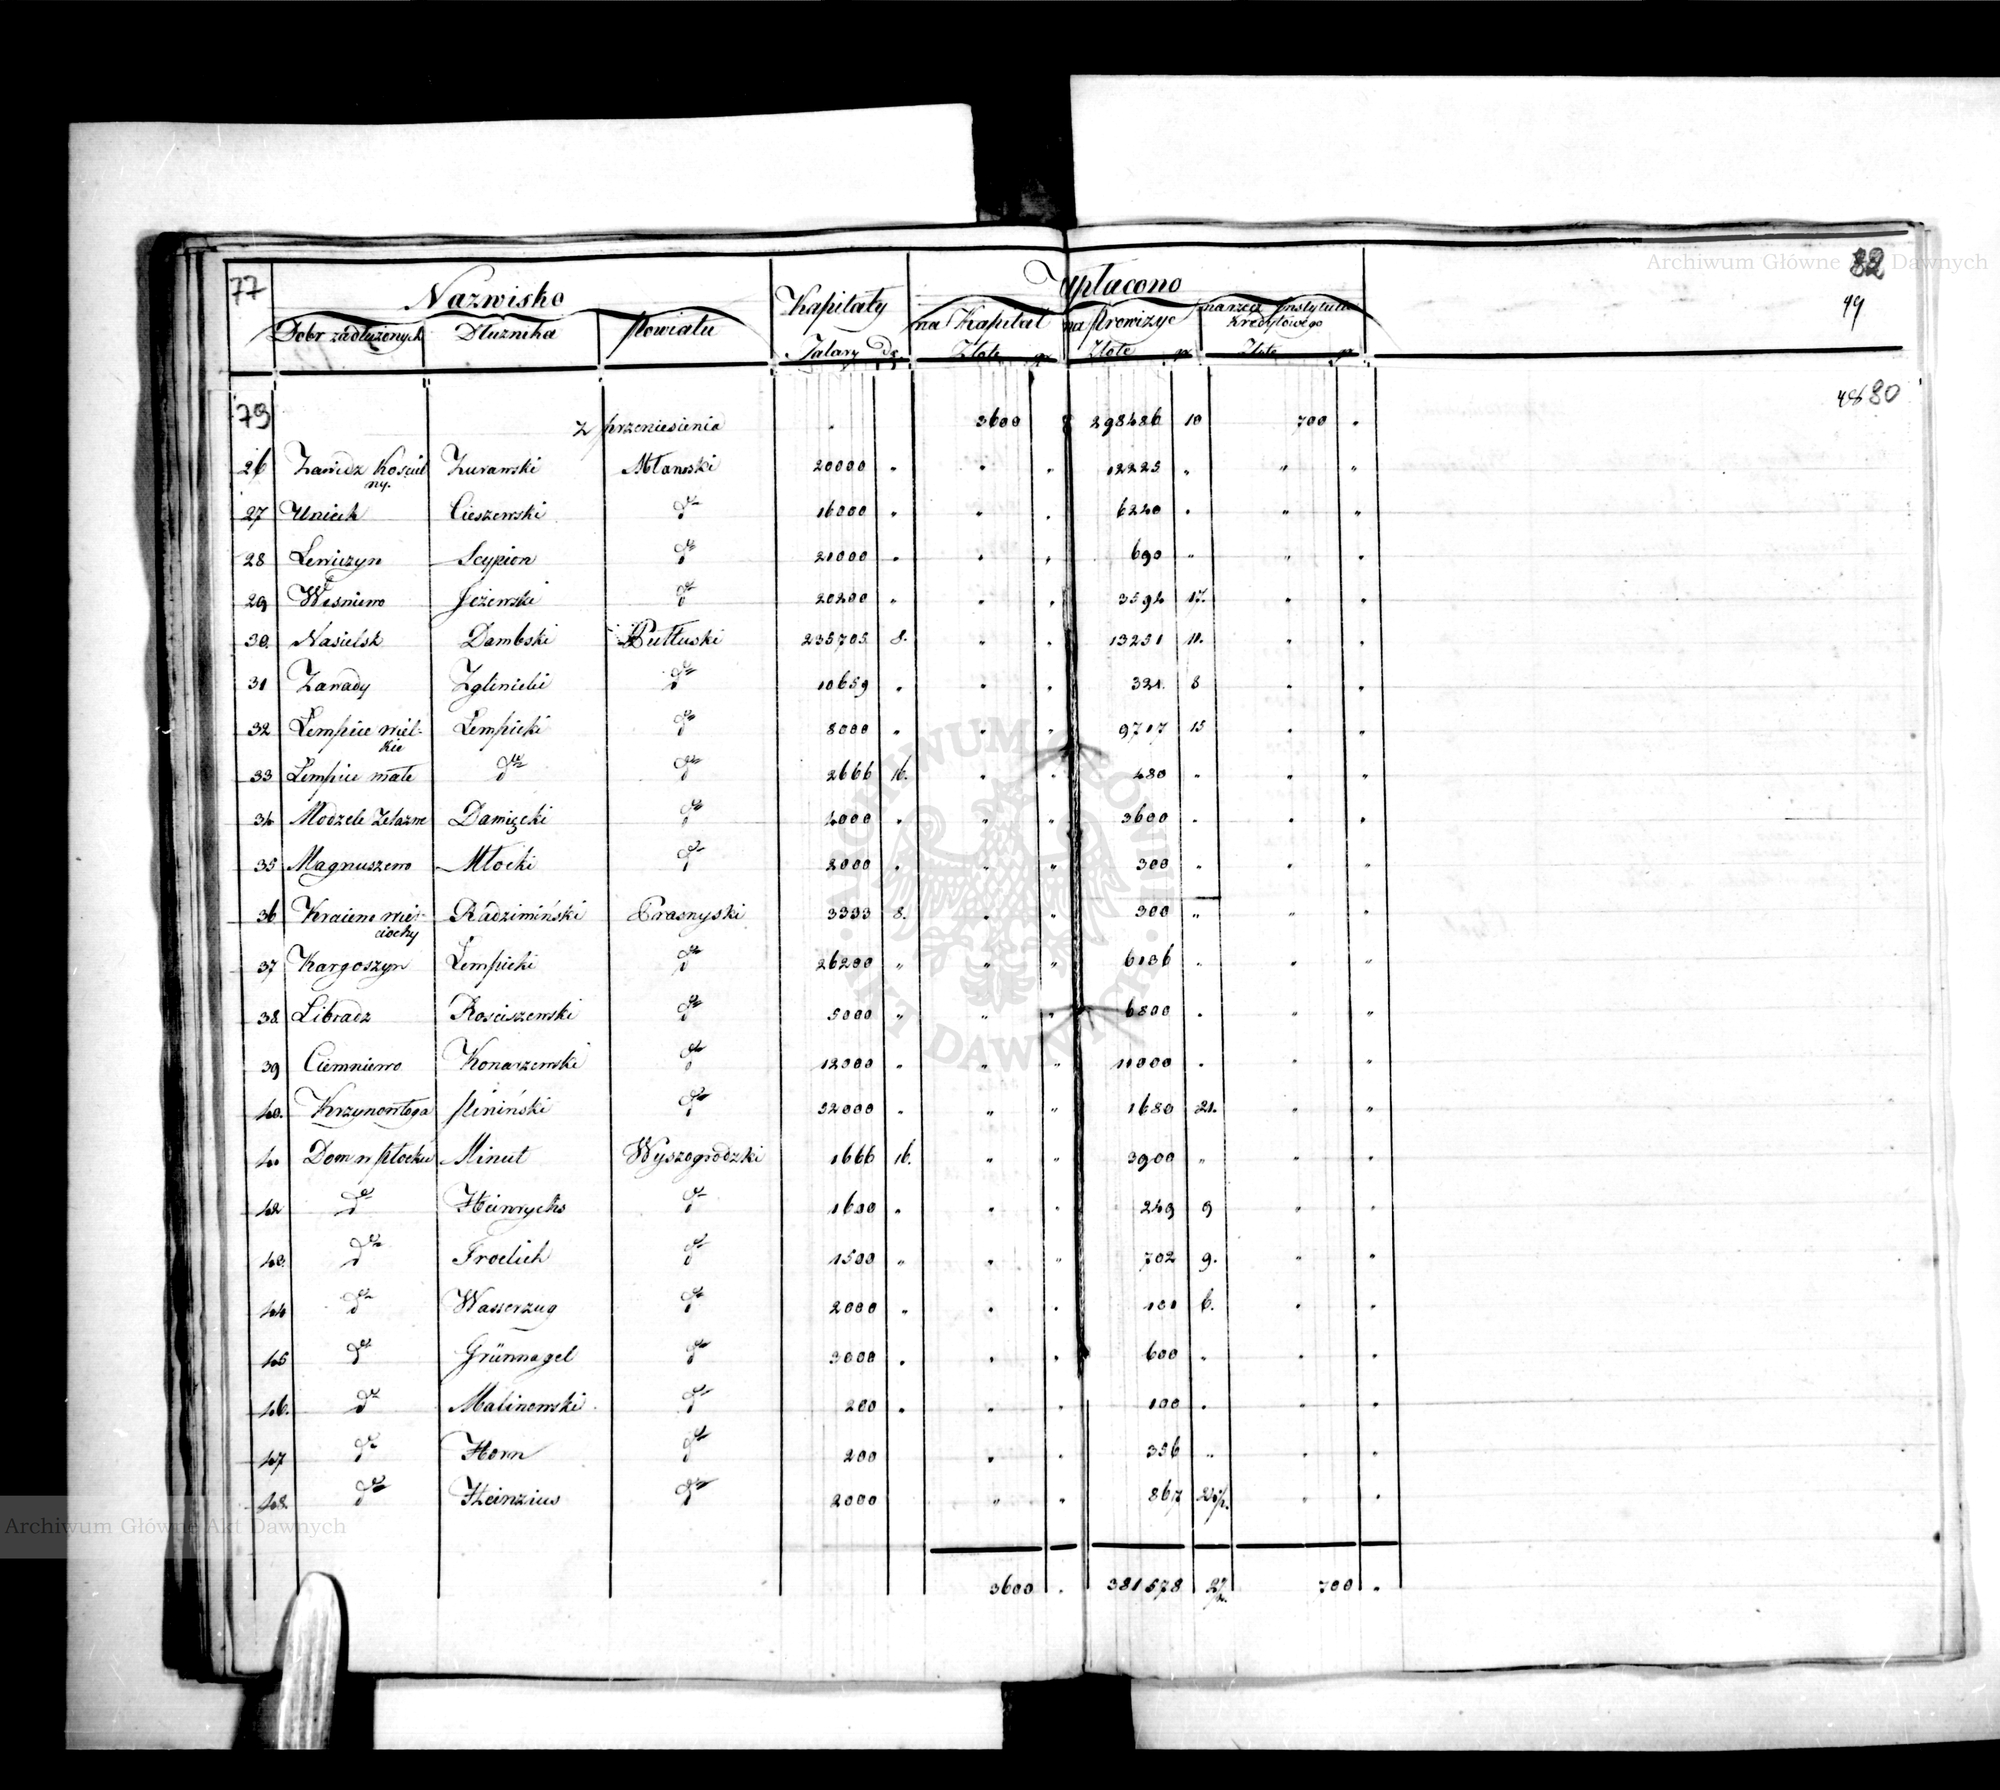 Archiwum Główne Akt Dawnych
82
49
77 Nazwisko Kapitały Wypłacono
Dobr zadłużonych Dłużnika Powiatu Talary Dg. na Kapitał Złote gr na Prowizye Złote gr na rzecz Instytutu Kredytowego Złote gr
80
79 z przeniesienia . 3600 298486 10 700 .
26 Zawidz Kosciel Zurawski Mławski 20000 " " " 12225 " " "
ny.
27 Unieck Cieszewski do 16000 " " . 6240 . " "
28 Lewiczyn Scypion do 21000 . . . 690 " " .
29 Wisniewo Jeżewski do 20200 " . . 3594 17. . .
30. Nasielsk Dambski Pułtuski 235705 8. " . 13251 11. . .
31 Zawady Zglinicki do 10659 . . . 321. 8 . .
32 Lempice wiel- Lempicki do 8000 " . . 9717 15 . .
kie
33 Lempice małe do do 2666 16. . . 480 " . "
34 Modzele Zelazne Damięcki do 4000 . " " 3600 . . .
35 Magnuszewo Młocki do 2000 . " " 300 " . "
36 Kraiewo wier- Radzimiński Prasnyski 3333 8. . " 300 " " .
ciochy
37 Kargoszyn Lempicki do 26200 " " " 6136 . . "
38 Libradz Rosciszewski do 5000 " " " 6800 . " "
39 Ciemniewo Konarzewski do 12000 " " " 11000 . " "
40. Krzynowłoga Pliniński do 32000 " " " 1680 21. " "
41 Dom w Płocku Minut Wyszogrodzki 1666 16. " " 3900 " " .
42 do Heinrychs do 1600 . . . 249 9 " .
43. do Froelich do 1500 " . " 702 9. " .
44 do Wasserzug do 2000 " . . 101 6. . .
45 do Grünnagel do 3000 . . . 600 . . .
46. do Malinowski do 200 . " . 100 . . .
47 do Horn do 200 . . 356 " . .
48. do Heinzius do 2000 " . 867 . .
3600 . 381578 700 .
Archiwum Główne Akt Dawnych
ARCHIWUM GŁÓWNE AKT DAWNYCH